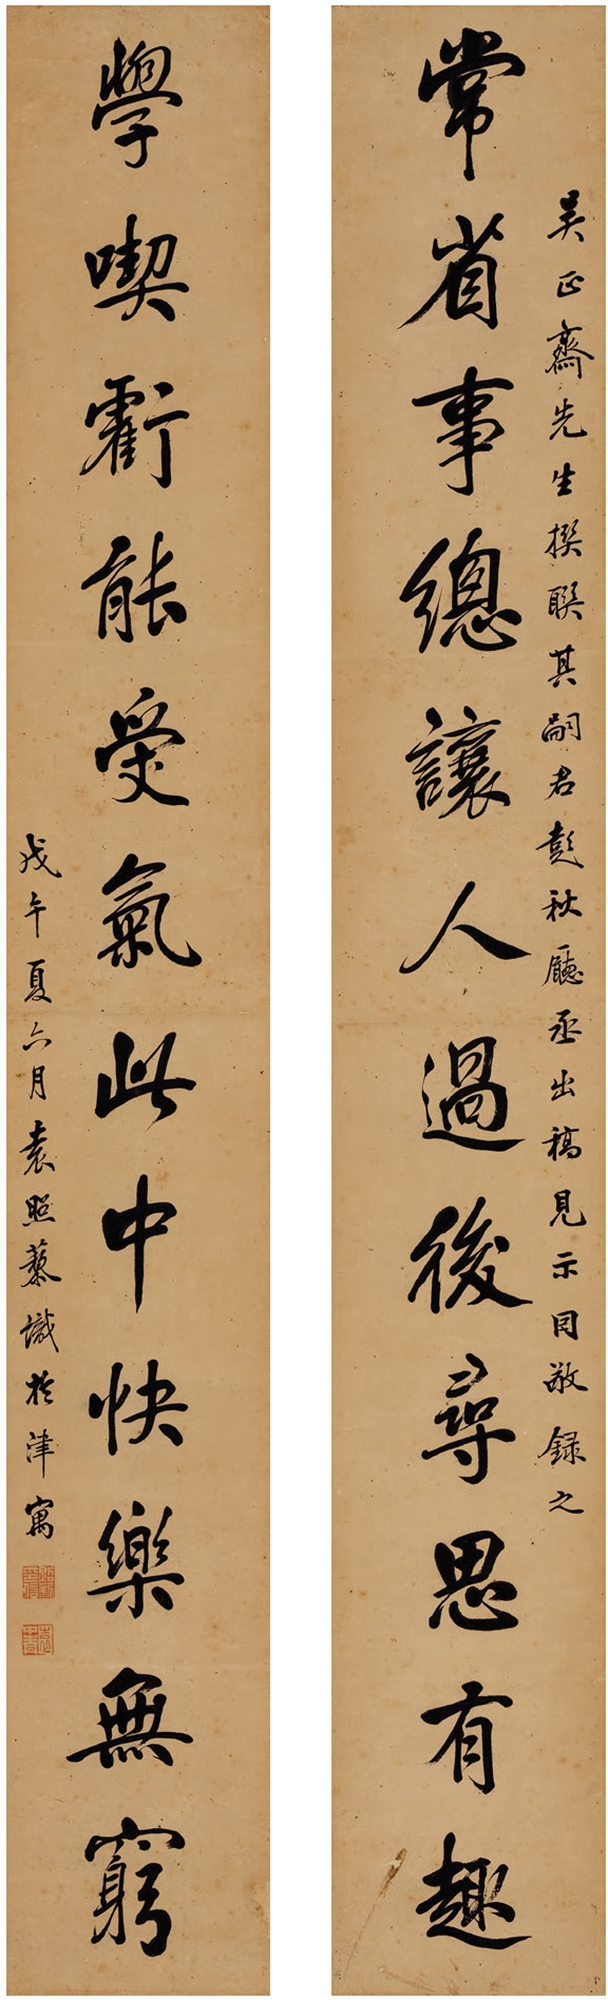 吴正齋先生撰聯其嗣君彭秋廳丞出稿見示因敬録之
常省事總讓人過後尋思有趣
學喫虧能受氣此中快樂無窮
戊午夏六月袁照藜識於津寓